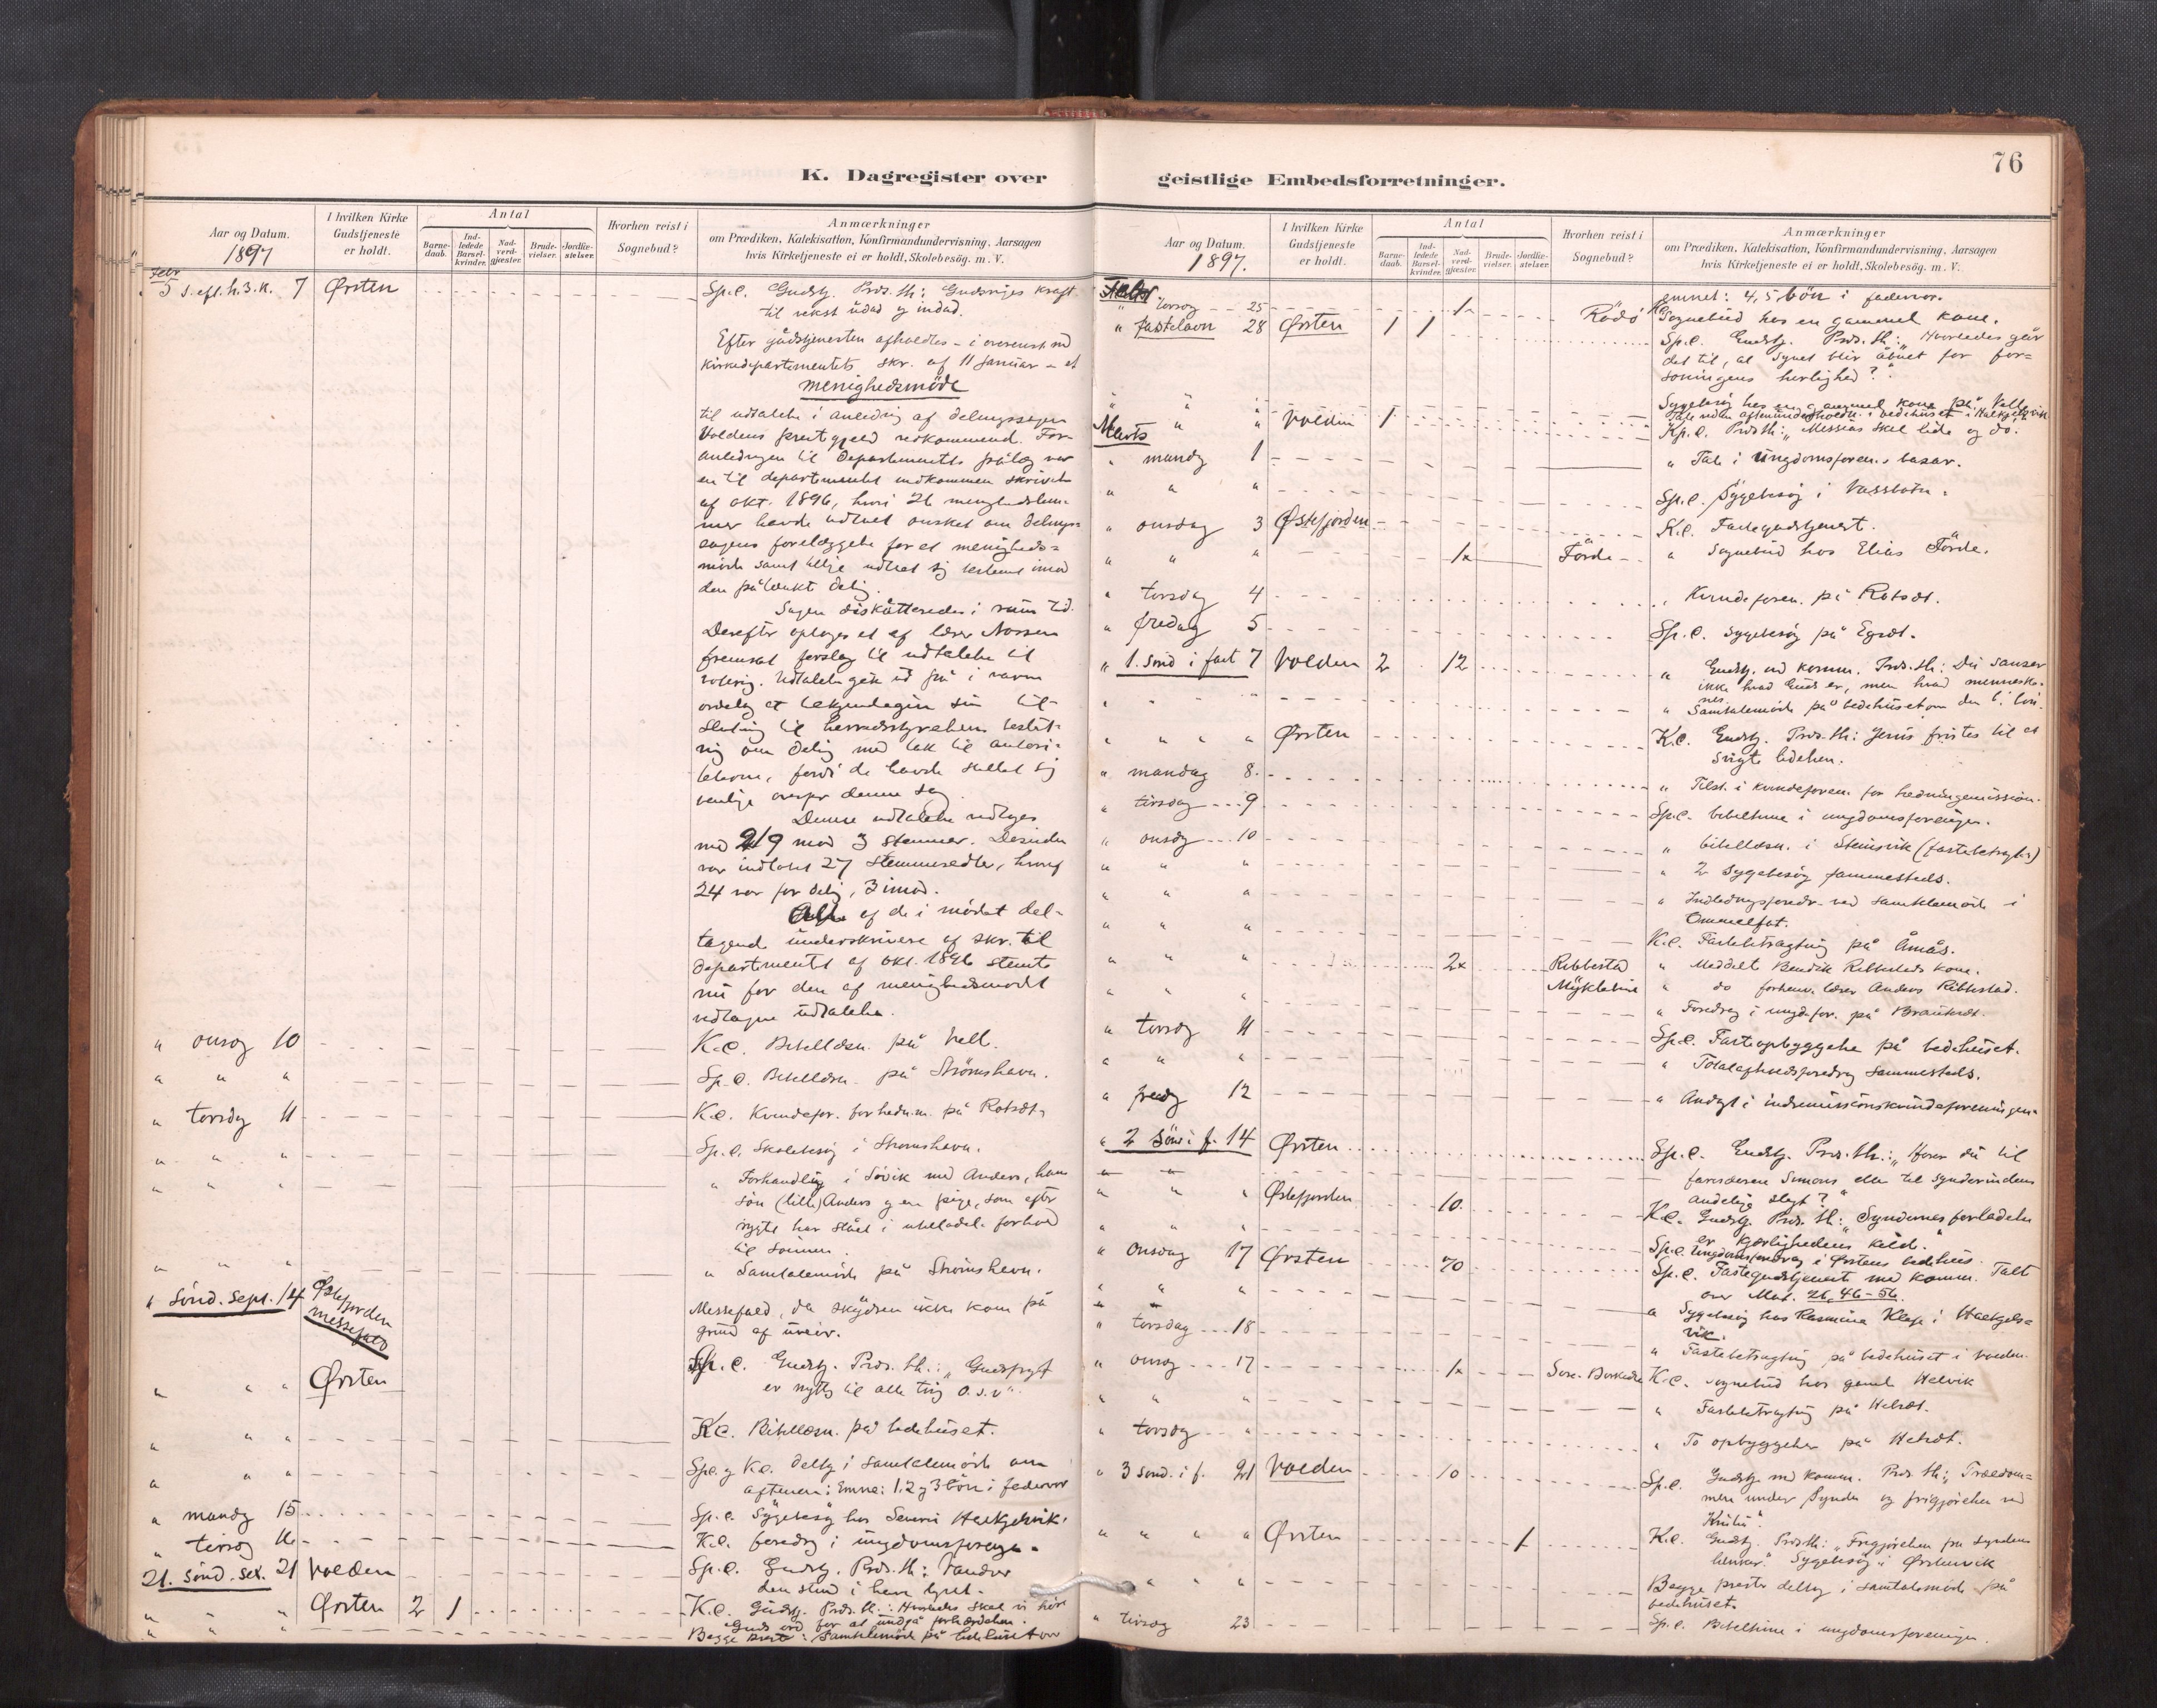 76
K. Dagregister over
Aar og Datum.
1897
I hvilken Kirke
Gudstjeneste
er holdt.
Antal
Barne-
daab.
Ind-
ledede
Barsel-
kvinder.
Nad-
verd-
gjæster.
Brude-
vielser.
Jordfæ-
stelser.
Hvorhen reist i
Sognebud?
Anmærkninger
om Prædiken, Katekisation, Konfirmandundervisning, Aarsagen
hvis Kirketjeneste ei er holdt, Skolebesøg. m. V.
Febr
5 S. eft. h. 3. k. 7 Ørsten Sp. C. Gudstj. Præd. th: Gudsriges kraft
til vekst udad og indad.
Efter gudstjenesten afholdtes - i overenst. med
Kirkedepartementets skr. af 11 januar - et
menighedsmöde
til udtalelse i anledning af delingssagen
Voldens prestegjeld vedkommend. For-
anledningen til departementets pålæg var
en til departementet indkommen skrivelse
af okt. 1896, hvori 26 menighedslem-
mer havde udtalt ønsket om delings-
sagens forelæggelse for et menigheds-
möde samt tillige udtalt sig bestemt imod
den påtænkte deling.
Sagen diskutteredes i rum tid.
Derefter optoges et af lærer Aarsen
fremsat forslag til udtalelse til
votering. Udtalelsen gik ud på i varme
ordelag at tilkjendegive sin til-
slutning til herredsstyrelsens beslut-
ning om deling med tak til autori-
teterne, fordi de havde stillet sig
venlige overfor denne sag.
Denne udtalelse vedtoges
med 29 mod 3 stemmer. Desuden
var indløbet 27 stemmesedler, hvoraf
24 var for deling, 3 imod.
Alle af de i mödet del-
tagende underskrivere af skr. til
departementet af okt. 1896 stemte
nu for den af menighedsmödet
vedtagne udtalelse.
" onsdg 10 K.C. Bibellæsn. på Vell.
" " " Sp. C. Bibellæsn. på Strömshavn.
" torsdg 11 K.C. Kvindefor. for hedn.m. på Rotsæt.
" " " Sp. C. Skolebesøg i Strömshavn.
" " " " Forhandling i Sövik med Anders, hans
sön (lille) Anders og en pige, som efter
rygte har stået i utilladel. forhold
til sönnen.
" " " " Samtalemöde på Strömshavn.
" Sönd. Sept. 14 Østefjorden
messefald Messefald, da skydsen ikke kom på
grund af uveir.
" " " Ørsten Sp. C. Gudstj. Præd. th.: "Gudsfrygt
er nyttig til alle ting o.s.v".
" " " K.C. Bibellæsn. på bedehuset.
" " " Sp.C. og K.C. deltog i samtalemöde om
aftenen: Emne: 1. 2 og 3 bön i fadervor
" mandg 15 Sp. C. Sygebesøg hos Severin Hækgelsvik.
" tirsdg 16 K.C. foredrg i ungdomsforeng.
21. Sönd. Sex. 21 Volden Sp. C. Gudstj. Præd. th:
" " " Ørsten 2 1 K.C. Gudstj. Præd. th.: Hvorledes skal vi höre
Guds ord for at undgå forhærdelsen.
" " " Begge prester: Samtalemöde på bedehuset over
geistlige Embedsforretninger.
Aar og Datum.
1897.
I hvilken Kirke
Gudstjeneste
er holdt.
Antal
Barne-
daab.
Ind-
ledede
Barsel-
kvinder.
Nad-
verd-
gjæster.
Brude-
vielser.
Jordfæ-
stelser.
Hvorhen reist i
Sognebud?
Anmærkninger
om Prædiken, Katekisation, Konfirmandundervisning, Aarsagen
hvis Kirketjeneste ei er holdt, Skolebesøg. m. V.
emnet: 4, 5 bön i fadervor.
" torsdg 25 1 Rödö K.C. Sognebud hos en gammel kone.
" fastelavn 28 Ørsten 1 1 Sp. C. Gudstj. Præd. th: "Hvorledes går
det til, at synet blir åbnet for for-
soningens herlighed?".
" " " Sygebesøg hos en gammel kone på Vell.
" " " Volden 1 K.C. Præd. th: "Messias skal lide og dö.
Marts
" mandg 1 " Tale i ungdomsforen.s basar.
" " " Sp. C. Sygebesög i Vassbotn.
" onsdag 3 Østefjorden K.C. Fastegudstjenest.
" " " 1x Förde " Sognebud hos Elias Förde.
" torsdag 4 " Kvindeforen. på Rotsæt.
" fredag 5 Sp. C. Sygebesög på Egsæt.
" 1. sönd i fast 7 Volden 2 12 " Gudstj. med komm. Præd. th: Du sanser
ikke hvad Guds er, men hvad menneske-
nes.
" " " " Samtalemöde på bedehuset om den 6. bön.
" " " " Ørsten K.C. Gudstj. Præd. th: Jesus fristes til at
svigte lidelsen.
" mandag 8. " Tilst. i kvindeforen. for hedningemission.
" tirsdag 9 Sp. C. bibeltime i ungdomsforeningen.
" onsdg 10 " bibellæsn. i Steinsvik (fastebetragtn.)
" " " " 2 Sygebesög sammesteds.
" " " " Indledningsforedr. ved samtalemöde i
Ommelfot.
" " " K.C. Fastebetragtning på Åmås.
" " " 2x Ribbestad " Meddelt Bendik Ribbesteds kone.
Myklebust " do forhenv. lærer Anders Ribbestad.
" " " " Foredrag i ungd.for. på
" torsdg 11 Sp. C. Fasteopbyggelse på bedehuset.
" " " " Totalafholdsforedrag sammesteds.
" fredg 12 " Andagt i indremissionskvindeforeningen.
" 2 Sönd i f. 14 Ørsten Sp. C. Gudstj. Præd. th.: "Hörer du til
farisæeren Simons eller til synderindens
åndelige slegt?"
" " " Østefjorden 10 K.C. Gudstj. Præd. th: "Syndernes forladelse
er kjærlighedens kild."
" " " Sp. C. Ungdomsforedrag i Ørstens bedehus.
" onsdag 17 Ørsten 70 Sp. C. Fastegudstjenest med komm. Talt
over Mat. 26, 46-56.
" " " " Sygebesög hos Rasmina Klape i Hækgels-
vik.
" torsdag 18 " Fastebetragtning på bedehuset i Volden.
" onsdg 17 1x K.C. sognebud hos gamle Helvik
" " " " Fastebetragtning på Helsæt.
" torsdg " " To opbyggelser på Helsæt.
" 3 sönd. i f. 21 Volden 10 Sp. C. Gudstj. med komm. Præd. th: "Trældom-
men under Synden og frigjörelsen ved
Kristus".
" " " " Ørsten 1 K.C. Gudstj. Præd. th: "Frigjörelsen fra syndens
lænker." Sygebesög i Ørstenvik
" " " Begge prester deltog i samtalemöde på
bedehuset.
" tirsdg 23 Sp. C. Bibeltime i ungdomsforeningen.